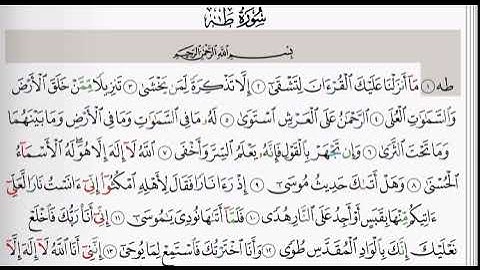 سُورَةُ طه
بِسْمِ اللَّهِ الرَّحْمَٰنِ الرَّحِيمِ
طه ١ مَا أَنزَلْنَا عَلَيْكَ الْقُرْءَانَ لِتَشْقَىٰ ٢ إِلَّا تَذْكِرَةً لِّمَن يَخْشَىٰ ٣ تَنزِيلًا مِّمَّنْ خَلَقَ الْأَرْضَ
وَالسَّمَٰوَٰتِ الْعُلَى ٤ الرَّحْمَٰنُ عَلَى الْعَرْشِ اسْتَوَىٰ ٥ لَهُ مَا فِي السَّمَٰوَٰتِ وَمَا فِي الْأَرْضِ وَمَا بَيْنَهُمَا
وَمَا تَحْتَ الثَّرَىٰ ٦ وَإِن تَجْهَرْ بِالْقَوْلِ فَإِنَّهُ يَعْلَمُ السِّرَّ وَأَخْفَى ٧ اللَّهُ لَا إِلَٰهَ إِلَّا هُوَ لَهُ الْأَسْمَاءُ
الْحُسْنَىٰ ٨ وَهَلْ أَتَىٰكَ حَدِيثُ مُوسَىٰ ٩ إِذْ رَءَا نَارًا فَقَالَ لِأَهْلِهِ امْكُثُوا إِنِّي ءَانَسْتُ نَارًا لَّعَلِّي
ءَاتِيكُم مِّنْهَا بِقَبَسٍ أَوْ أَجِدُ عَلَى النَّارِ هُدًى ١٠ فَلَمَّا أَتَىٰهَا نُودِيَ يَٰمُوسَىٰ ١١ إِنِّي أَنَا رَبُّكَ فَاخْلَعْ
نَعْلَيْكَ إِنَّكَ بِالْوَادِ الْمُقَدَّسِ طُوًى ١٢ وَأَنَا اخْتَرْتُكَ فَاسْتَمِعْ لِمَا يُوحَىٰ ١٣ إِنَّنِي أَنَا اللَّهُ لَا إِلَٰهَ إِلَّا